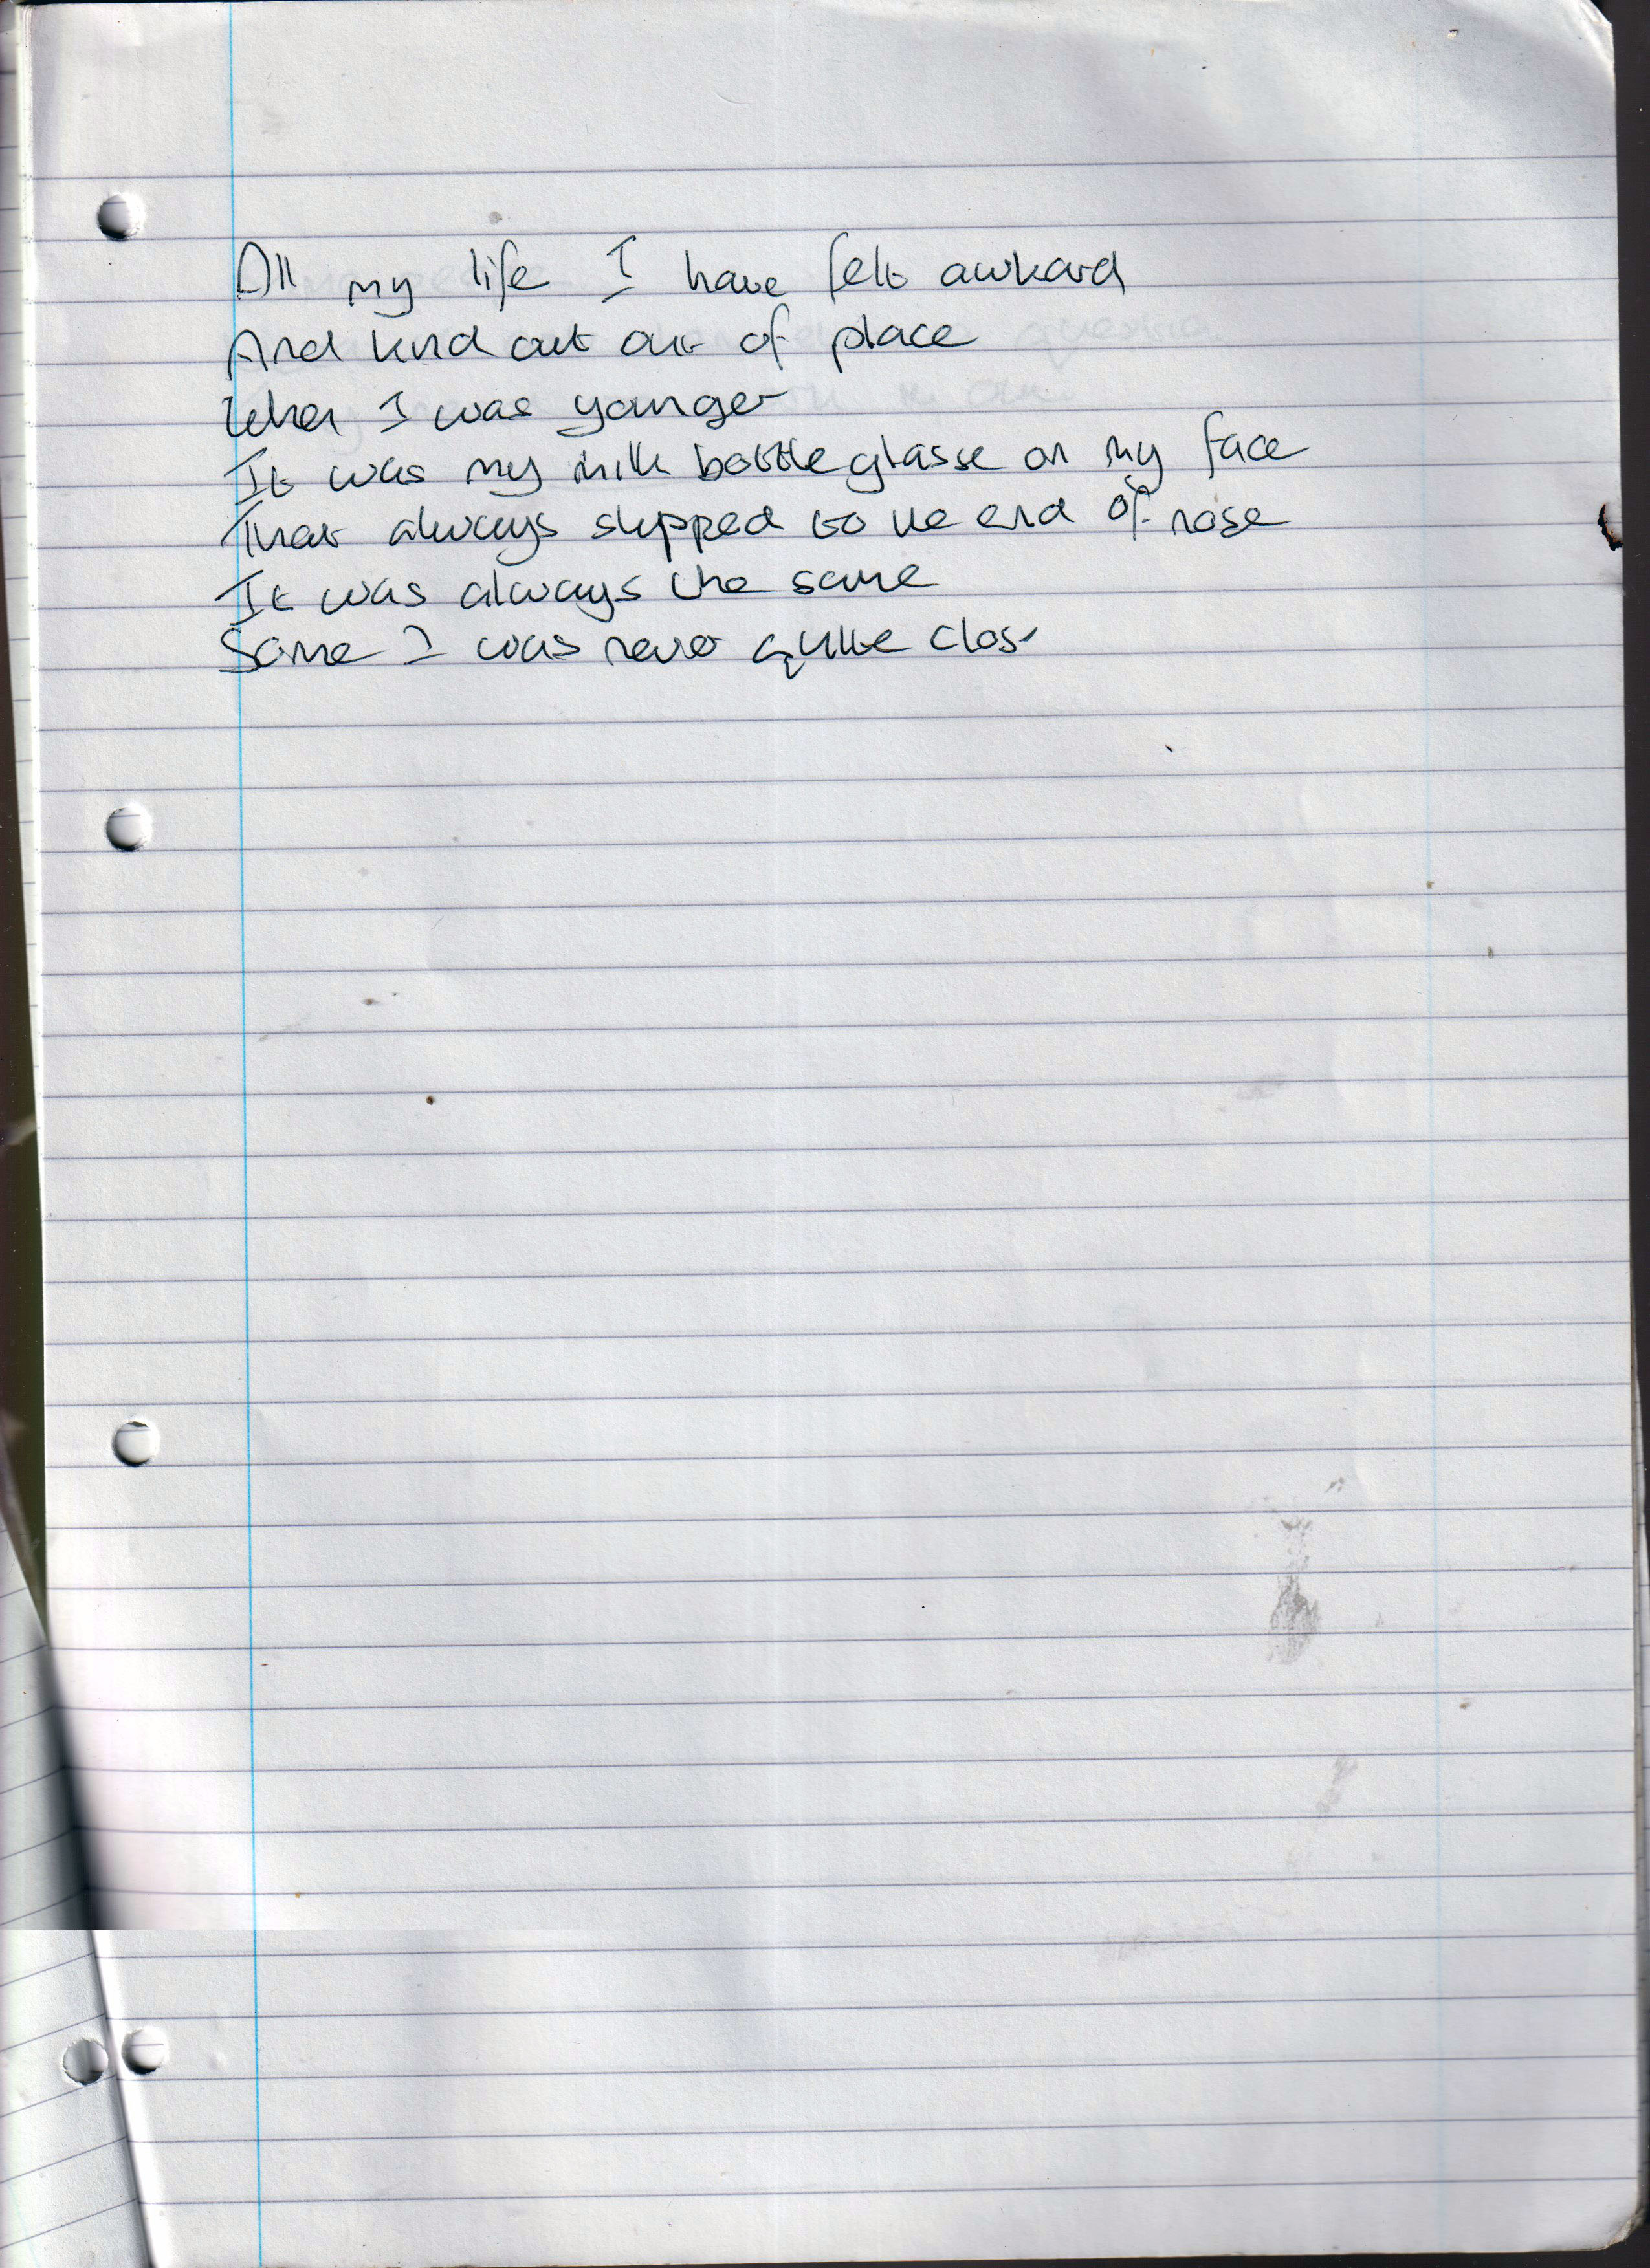 All my life I have felt awkard
And kind out out of place
When I was younger
It was my milk bottle glasse on my face
That always slipped to the end of nose
It was always the same
Some I was never quite close